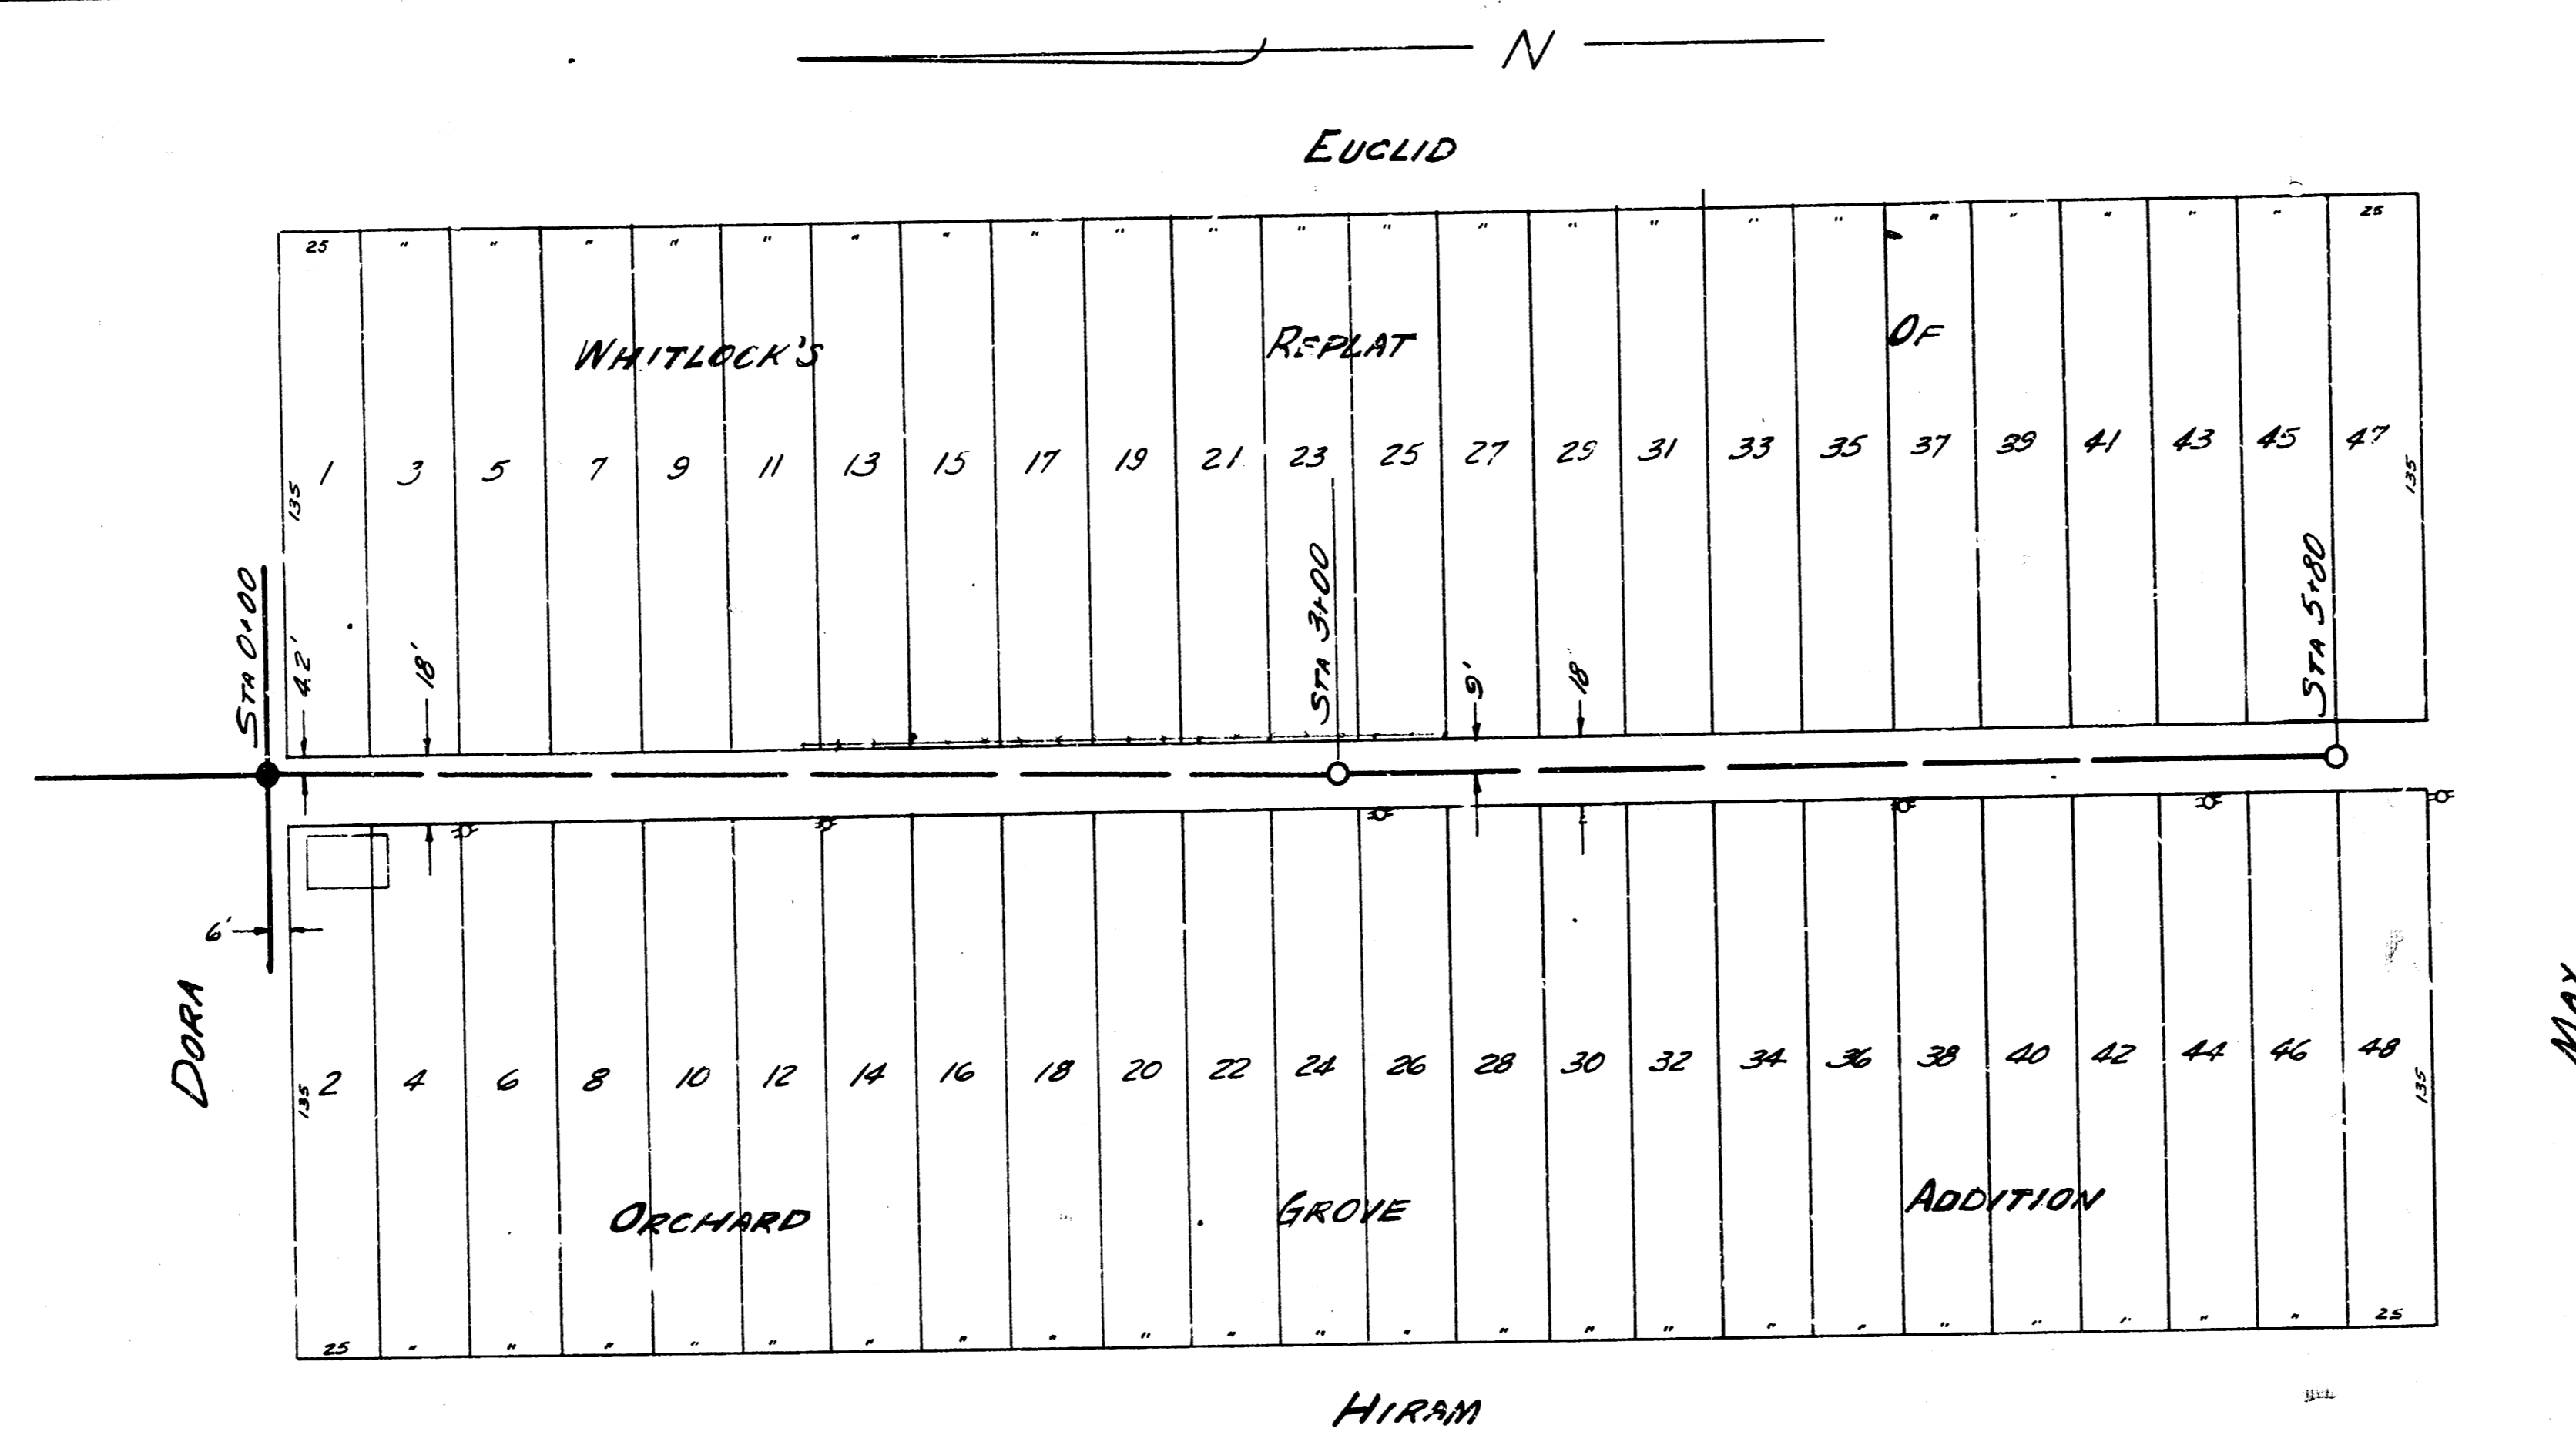 N
EUCLID
25 " " " " " " " " " " " " " " " " " " " " " " 25
WHITLOCK'S REPLAT OF
1 3 5 7 9 11 13 15 17 19 21 23 25 27 29 31 33 35 37 39 41 43 45 47
135
135
STA 0+00
4.2'
18'
STA 3+00
9'
18'
STA 5+80
6'
DORA
MAY
2 4 6 8 10 12 14 16 18 20 22 24 26 28 30 32 34 36 38 40 42 44 46 48
135
135
ORCHARD GROVE ADDITION
25 " " " " " " " " " " " " " " " " " " " " " " 25
HIRAM